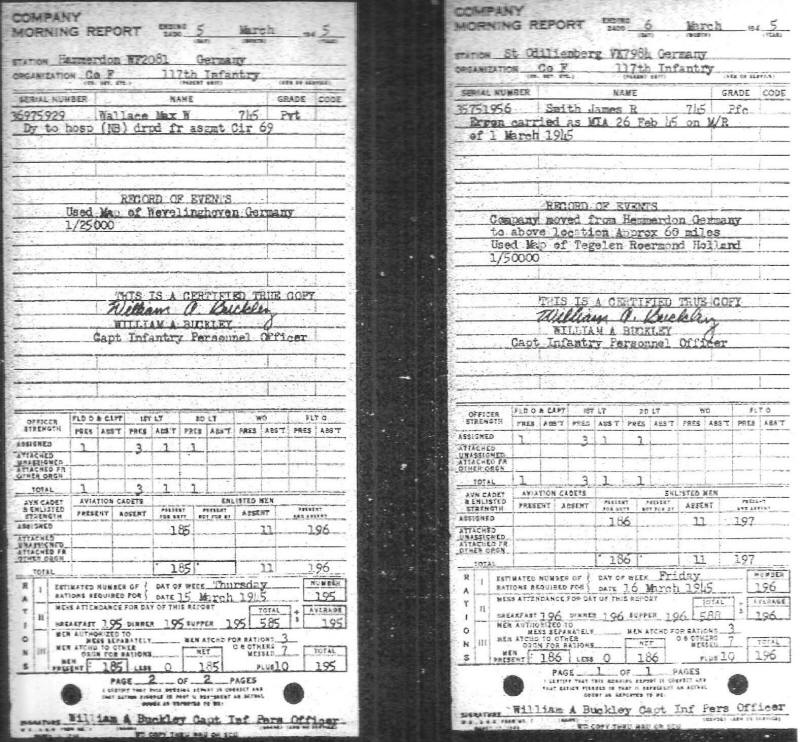 COMPANY
MORNING REPORT ENDING 2400 5 March 1945
(DAY) (MONTH) (YEAR)
STATION Hammerdon WF2081 Germany
ORGANIZATION Co F 117th Infantry
SERIAL NUMBER NAME GRADE CODE
36975929 Wallace Max W 745 Pvt
Dy to hosp (NB) drpd fr asgmt Cir 69
RECORD OF EVENTS
Used Map of Wevelinghoven Germany
1/25000
THIS IS A CERTIFIED TRUE COPY
William A. Buckley
WILLIAM A BUCKLEY
Capt Infantry Personnel Officer
OFFICER STRENGTH FLD O & CAPT 1ST LT 2D LT WO FLT O
PRES ABS'T PRES ABS'T PRES ABS'T PRES ABS'T PRES ABS'T
ASSIGNED 1 3 1 1
ATTACHED UNASSIGNED
ATTACHED FR OTHER ORGN
TOTAL 1 3 1 1
AVN CADET & ENLISTED STRENGTH AVIATION CADETS ENLISTED MEN
PRESENT ABSENT PRESENT FOR DUTY PRESENT NOT FOR DY ABSENT PRESENT AND ABSENT
ASSIGNED 185 11 196
ATTACHED UNASSIGNED
ATTACHED FR OTHER ORGN
TOTAL 185 11 196
RATIONS
I ESTIMATED NUMBER OF RATIONS REQUIRED FOR DAY OF WEEK Thursday NUMBER
DATE 15 March 1945 195
II MESS ATTENDANCE FOR DAY OF THIS REPORT TOTAL ÷ 3 AVERAGE
BREAKFAST 195 DINNER 195 SUPPER 195 585 195
III MEN AUTHORIZED TO MESS SEPARATELY MEN ATCHD FOR RATIONS 3
MEN ATCHD TO OTHER ORGN FOR RATIONS NET OTHERS MESSED 7 TOTAL
MEN PRESENT 185 LESS 0 185 PLUS 10 195
PAGE 2 OF 2 PAGES
I CERTIFY THAT THIS MORNING REPORT IS CORRECT AND
SIGNATURE William A Buckley Capt Inf Pers Officer
COMPANY
MORNING REPORT ENDING 2400 6 March 1945
(DAY) (MONTH) (YEAR)
STATION St Odilienberg VK798h Germany
ORGANIZATION Co F 117th Infantry
SERIAL NUMBER NAME GRADE CODE
35751956 Smith James R 745 Pfc
Erron carried as MIA 26 Feb 45 on M/R
of 1 March 1945
RECORD OF EVENTS
Company moved from Hemmerdon Germany
to above location Approx 60 miles
Used Map of Tegelen Roermond Holland
1/50000
THIS IS A CERTIFIED TRUE COPY
William A. Buckley
WILLIAM A BUCKLEY
Capt Infantry Personnel Officer
OFFICER STRENGTH FLD O & CAPT 1ST LT 2D LT WO FLT O
PRES ABS'T PRES ABS'T PRES ABS'T PRES ABS'T PRES ABS'T
ASSIGNED 1 3 1 1
ATTACHED UNASSIGNED
ATTACHED FR OTHER ORGN
TOTAL 1 3 1 1
AVN CADET & ENLISTED STRENGTH AVIATION CADETS ENLISTED MEN
PRESENT ABSENT PRESENT FOR DUTY PRESENT NOT FOR DY ABSENT PRESENT AND ABSENT
ASSIGNED 186 11 197
ATTACHED UNASSIGNED
ATTACHED FR OTHER ORGN
TOTAL 186 11 197
RATIONS
I ESTIMATED NUMBER OF RATIONS REQUIRED FOR DAY OF WEEK Friday NUMBER
DATE 16 March 1945 196
II MESS ATTENDANCE FOR DAY OF THIS REPORT TOTAL ÷ 3 AVERAGE
BREAKFAST 196 DINNER 196 SUPPER 196 588 196
III MEN AUTHORIZED TO MESS SEPARATELY MEN ATCHD FOR RATIONS 3
MEN ATCHD TO OTHER ORGN FOR RATIONS NET OTHERS MESSED 7 TOTAL
MEN PRESENT 186 LESS 0 186 PLUS 10 196
PAGE 1 OF 1 PAGES
I CERTIFY THAT THIS MORNING REPORT IS CORRECT AND
SIGNATURE William A Buckley Capt Inf Pers Officer